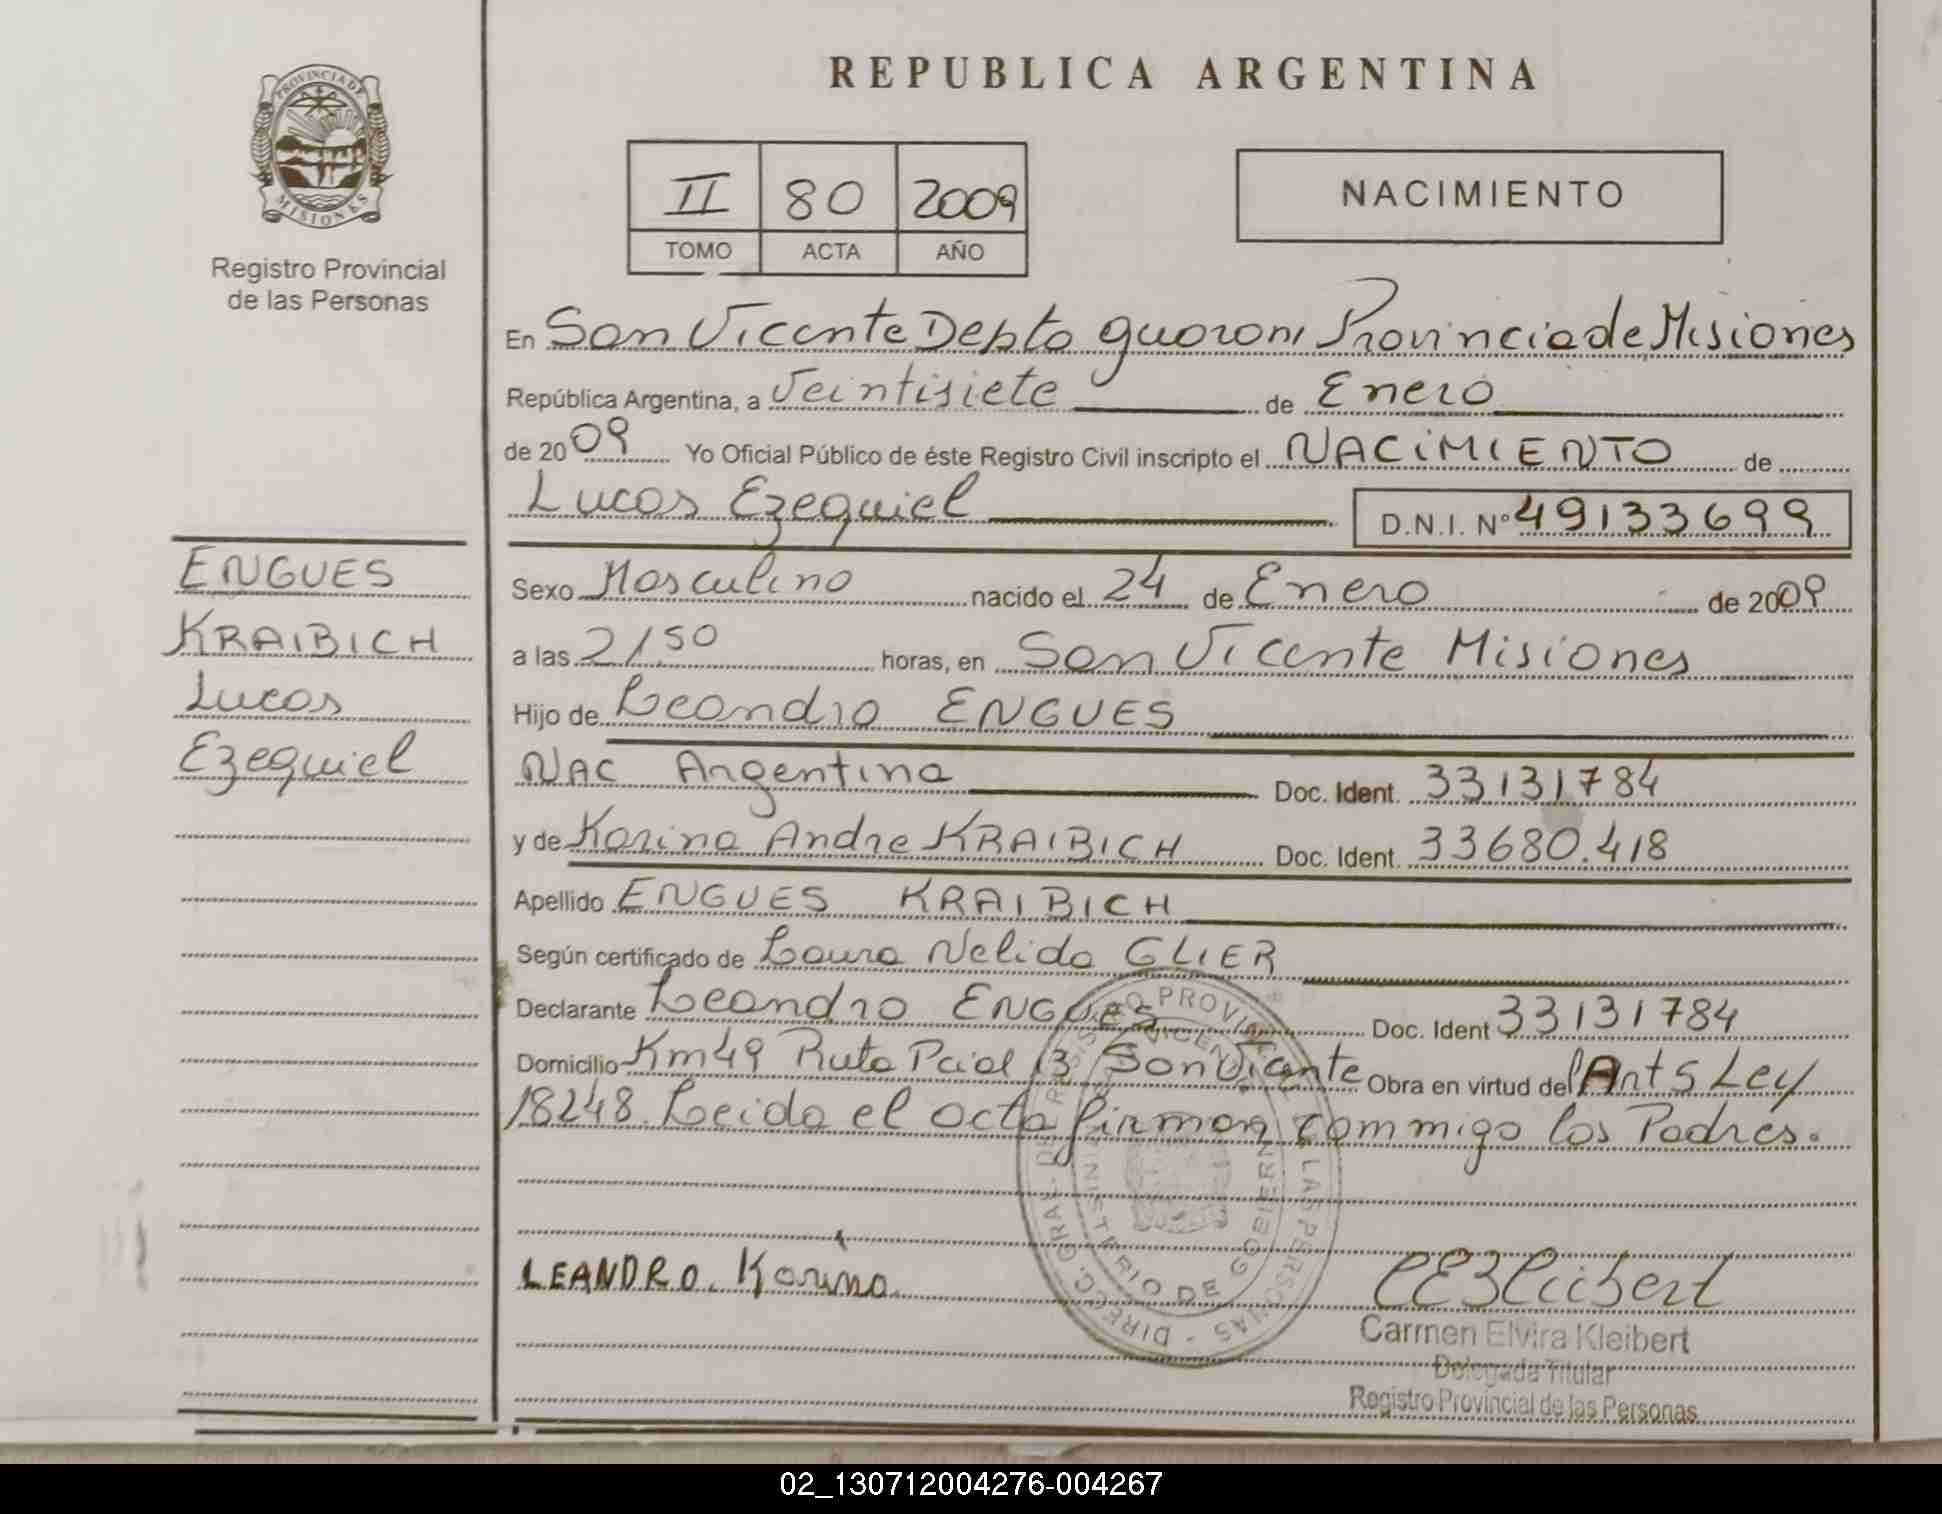 REPUBLICA ARGENTINA
PROVINCIA DE
MISIONES
Registro Provincial
de las Personas
II 80 2009
TOMO ACTA AÑO
NACIMIENTO
En San Vicente Depto guarani Provincia de Misiones
República Argentina, a Veintisiete de Enero
de 2009 Yo Oficial Público de éste Registro Civil inscripto el NACIMIENTO de
Lucas Ezequiel D.N.I. Nº 49133699
ENGUES
KRAIBICH
Lucas
Ezequiel
Sexo Masculino nacido el 24 de Enero de 2009
a las 21,50 horas, en San Vicente Misiones
Hijo de Leandro ENGUES
NAC Argentina Doc. Ident. 33131784
y de Karina Andre KRAIBICH Doc. Ident. 33680.418
Apellido ENGUES KRAIBICH
Según certificado de Laura Nelida GLIER
Declarante Leandro ENGUES Doc. Ident 33131784
Domicilio Km49 Ruta Pcial 13 San Vicente Obra en virtud del Art 5 Ley
18248. Leida el acta firman commigo los Padres.
LEANDRO. Karina.
DIREC. GRAL. DE REGISTRO PROVINCIAL DE LAS PERSONAS -
SAN VICENTE
MINISTERIO DE GOBIERNO
Carmen Elvira Kleibert
Delegada Titular
Registro Provincial de las Personas
02_130712004276-004267